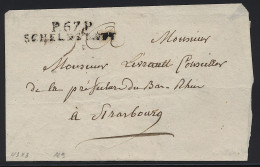 P.67.P
SCHELESTATT
Monsieur
Monsieur Levrault Conseiller
de la préfecture du Bas-Rhin
à Strasbourg